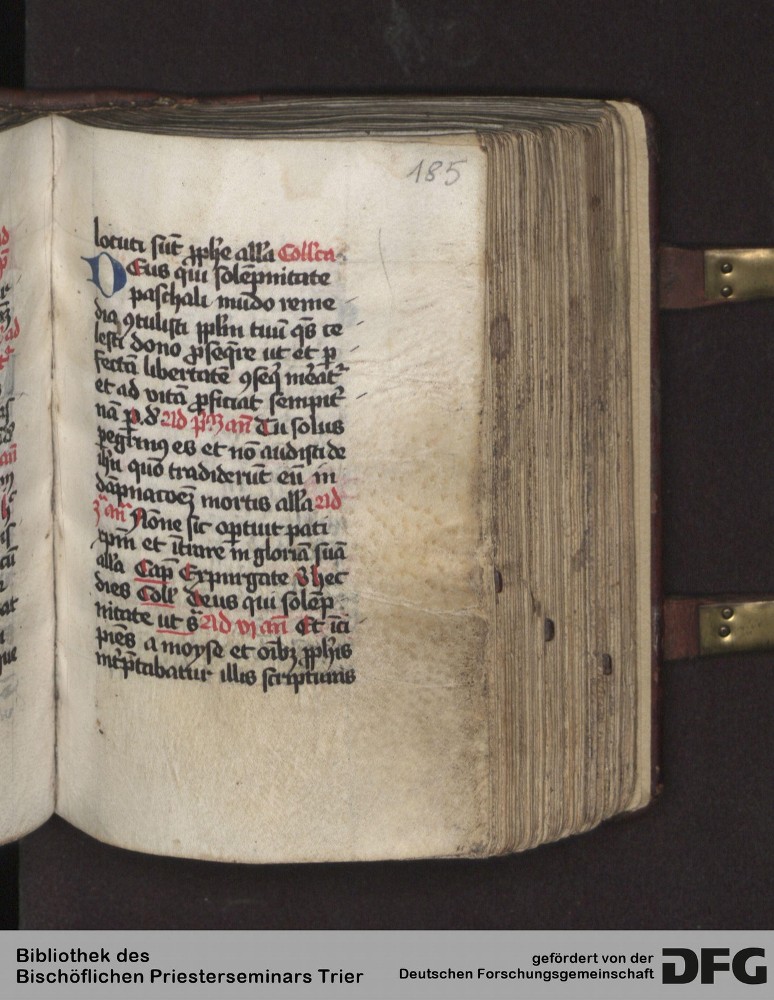 185
locuti sūt ꝓphe alľa Collcā
Deus qui solēpnitate
paschali mūdo reme
dia ꝯtulisti pplm̄ tuū qs̄ ce
lesti dono ꝓseq̄re ut et ꝑ
fectā libertatē ꝯseq̄ m̄eatᷣ
et ad vitā ꝓficiat sempitᷣ
nā ꝑ. d. Ad p̄mā an̄ Tu solus
peg̃rinꝰ es et nō audisti de
ihū quō tradiderūt eū in
dāpnacōeꝫ mortis alľa Ad
3ᵃ an̄ Nōne sic oportuit pati
xpm̄ et ītrare in gloriā suā
alľa Cap̄ Expurgate V hec
dies Coll̄ Deus qui solēp
nitate ut s̄ Ad vj an̄ Et īci
piēs a moyse et oībꝫ ꝓphis
īnt̄p̄tabatur illis scripturas
Bibliothek des
Bischöflichen Priesterseminars Trier
gefördert von der
Deutschen Forschungsgemeinschaft
DFG